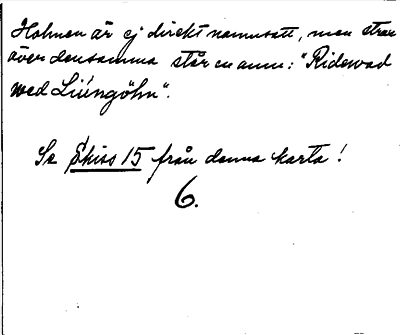 Holmen är ej direkt namnsatt, men strax
över densamma står en anm: "Ridewad
wed Liüngöhn".
Se Skiss 15 från denna karta!
6.